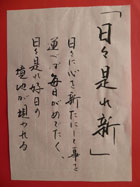 「日々是れ新」
日々に心を新たにして事を
毎日がめでたく
日々是れ好日の
境地が われる